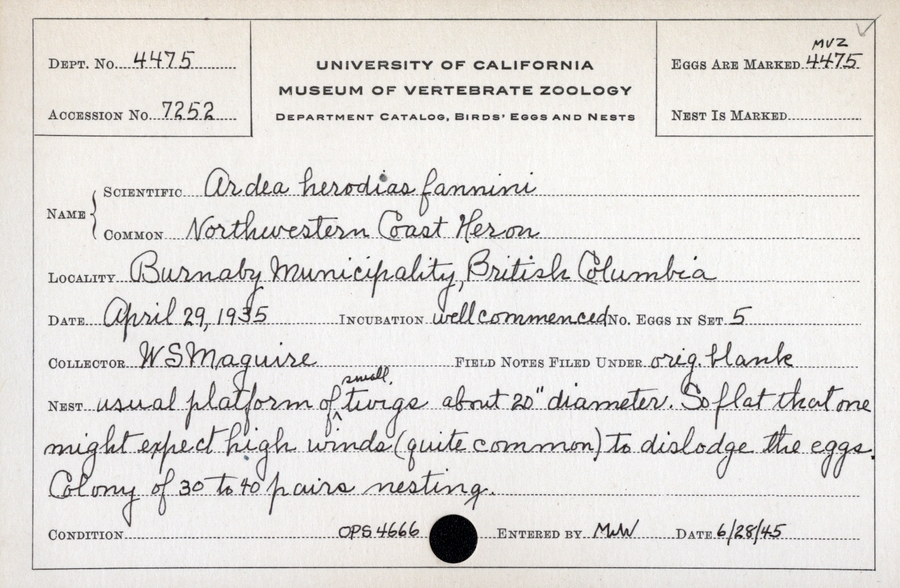 Dept. No. 4475
Accession No. 7252
UNIVERSITY OF CALIFORNIA
MUSEUM OF VERTEBRATE ZOOLOGY
Department Catalog, Birds' Eggs and Nests
MVZ
Eggs Are Marked 4475
Nest Is Marked
Name
Scientific Ardea herodias fannini
Common Northwestern Coast Heron
Locality Burnaby Municipality, British Columbia
Date April 29, 1935 Incubation well commenced No. Eggs in Set 5
Collector WS Maguire Field Notes Filed Under orig. blank
small
Nest usual platform of ^ twigs about 20" diameter. So flat that one
might expect high winds (quite common) to dislodge the eggs.
Colony of 30 to 40 pairs nesting.
Condition OPS 4666 Entered by MWW Date 6/28/45